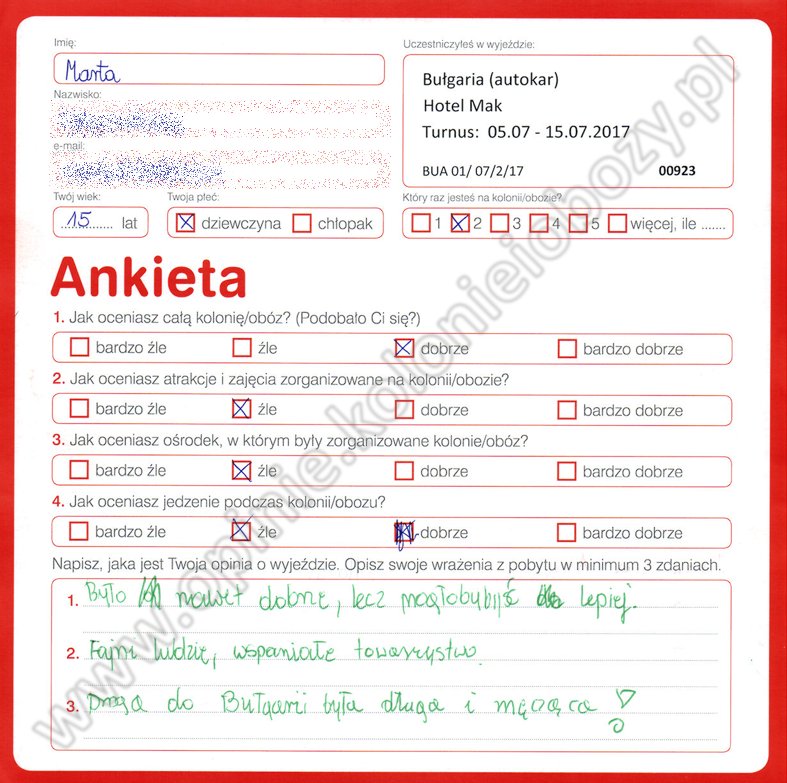 Imię:
Marta
Uczestniczyłeś w wyjeździe:
Bułgaria (autokar)
Hotel Mak
Turnus: 05.07 - 15.07.2017
BUA 01/ 07/2/17 00923
Nazwisko:
e-mail:
Twój wiek:
15 lat
Twoja płeć:
dziewczyna chłopak
Który raz jesteś na kolonii/obozie?
1 2 3 4 5 więcej, ile .......
Ankieta
1. Jak oceniasz całą kolonię/obóz? (Podobało Ci się?)
bardzo źle źle dobrze bardzo dobrze
2. Jak oceniasz atrakcje i zajęcia zorganizowane na kolonii/obozie?
bardzo źle źle dobrze bardzo dobrze
3. Jak oceniasz ośrodek, w którym były zorganizowane kolonie/obóz?
bardzo źle źle dobrze bardzo dobrze
4. Jak oceniasz jedzenie podczas kolonii/obozu?
bardzo źle źle dobrze bardzo dobrze
Napisz, jaka jest Twoja opinia o wyjeździe. Opisz swoje wrażenia z pobytu w minimum 3 zdaniach.
1. Było nawet dobrze, lecz mogłobybyś lepiej.
2. Fajni ludzie, wspaniałe towarzystwo.
3. Droga do Bułgarii była długa i męcząca!
www.opinie.kolonieiobozy.pl